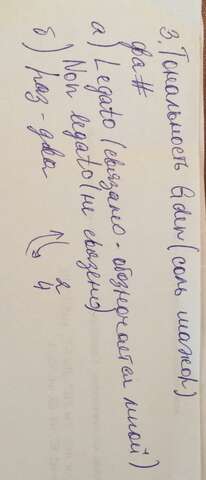 3. Тональность G dur (соль мажор)
фа#
а) Legato (связано - обозначается лигой)
Non legato (не связано)
б) раз - два 2 4